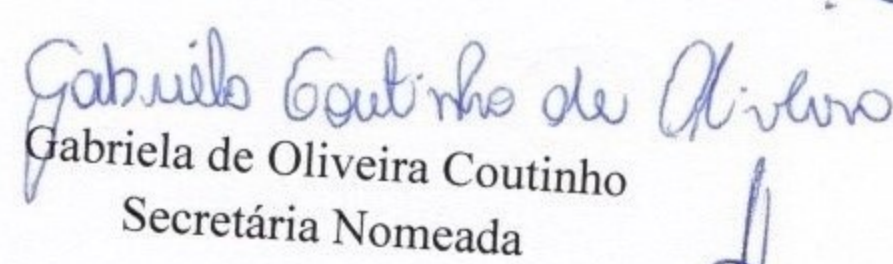 Gabriela Coutinho de Oliveira
Gabriela de Oliveira Coutinho
Secretária Nomeada